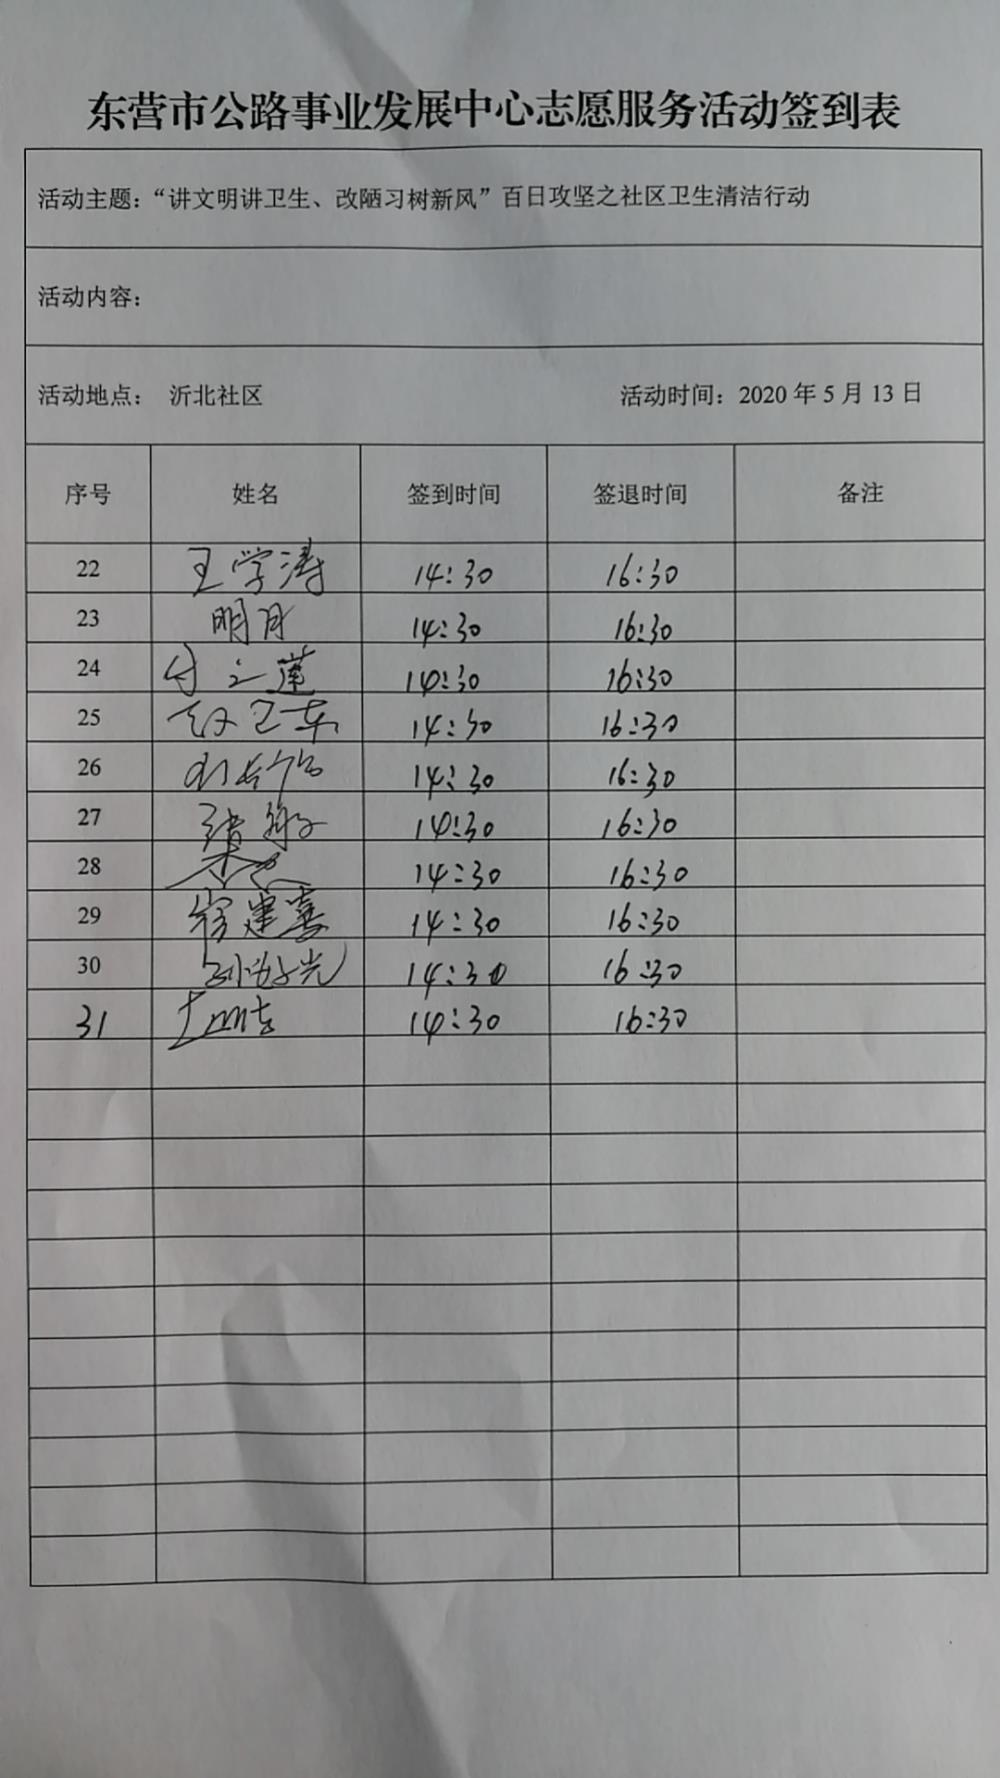 东营市公路事业发展中心志愿服务活动签到表
活动主题：“讲文明讲卫生、改陋习树新风”百日攻坚之社区卫生清洁行动
活动内容：
活动地点： 沂北社区 活动时间：2020 年 5 月 13 日
序号 姓名 签到时间 签退时间 备注
22 王学涛 14:30 16:30
23 明月 14:30 16:30
24 14:30 16:30
25 赵卫东 14:30 16:30
26 14:30 16:30
27 14:30 16:30
28 14:30 16:30
29 14:30 16:30
30 14:30 16:30
31 14:30 16:30